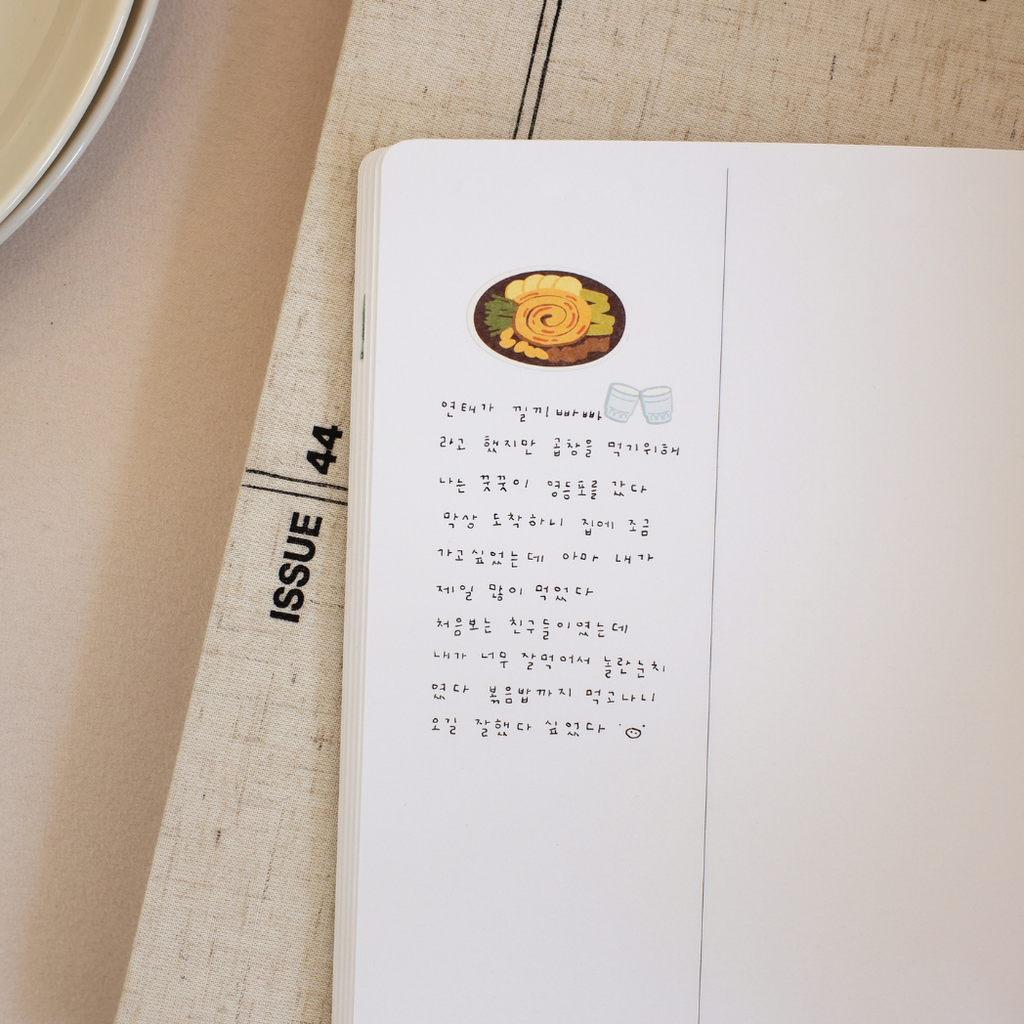 ISSUE 44
연태가 낄끼빠빠
라고 했지만 곱창을 먹기위해
나는 꿋꿋이 영등포를 갔다
막상 도착하니 집에 조금
가고싶었는데 아마 내가
제일 많이 먹었다
처음보는 친구들이였는데
내가 너무 잘먹어서 놀란눈치
였다 볶음밥까지 먹고나니
오길 잘했다 싶었다